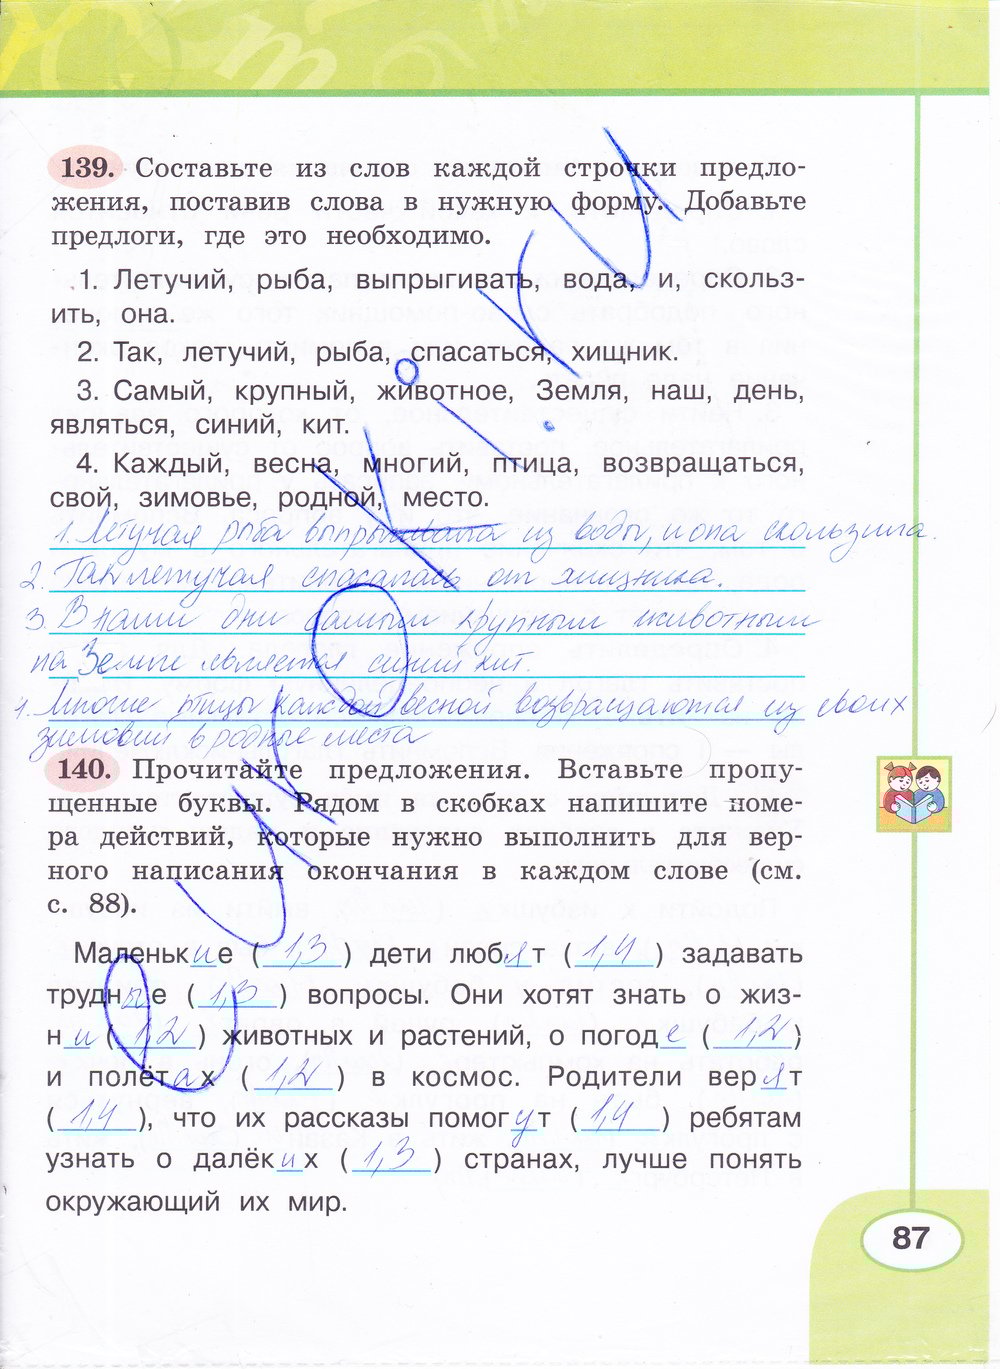 139. Составьте из слов каждой строчки предло-
жения, поставив слова в нужную форму. Добавьте
предлоги, где это необходимо.
1. Летучий, рыба, выпрыгивать, вода, и, скольз-
ить, она.
2. Так, летучий, рыба, спасаться, хищник.
3. Самый, крупный, животное, Земля, наш, день,
являться, синий, кит.
4. Каждый, весна, многий, птица, возвращаться,
свой, зимовье, родной, место.
1. Летучая рыба выпрыгивала из воды, и она скользила.
2. Так летучая спасалась от хищника.
3. В наши дни самым крупным животным
на Земле является синий кит.
4. Многие птицы каждой весной возвращаются из своих
зимовий в родные места
140. Прочитайте предложения. Вставьте пропу-
щенные буквы. Рядом в скобках напишите номе-
ра действий, которые нужно выполнить для вер-
ного написания окончания в каждом слове (см.
с. 88).
Маленькие (1,3) дети любят (1,4) задавать
трудные (1,3) вопросы. Они хотят знать о жиз-
ни (1,2) животных и растений, о погоде (1,2)
и полётах (1,2) в космос. Родители верят
(1,4), что их рассказы помогут (1,4) ребятам
узнать о далёких (1,3) странах, лучше понять
окружающий их мир.
87